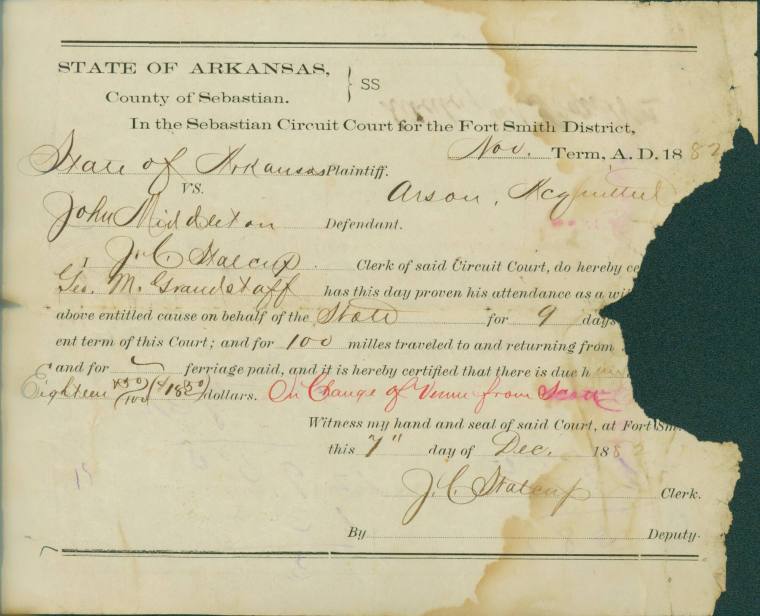 STATE OF ARKANSAS,
County of Sebastian. } SS
In the Sebastian Circuit Court for the Fort Smith District,
Nov. Term, A. D. 1882
State of Arkansas Plaintiff.
VS. Arson, Acquitted
John Middleton Defendant.
I J. C. Stalcup Clerk of said Circuit Court, do hereby ce
Geo. M. Grandstaff has this day proven his attendance as a wi
above entitled cause on behalf of the State for 9 days
ent term of this Court; and for 100 milles traveled to and returning from
and for ferriage paid, and it is hereby certified that there is due h
Eighteen 50/100 ($18.50) dollars. On Change of Venue from Scott
Witness my hand and seal of said Court, at Fort Sm
this 7" day of Dec. 188
J. C. Stalcup Clerk.
By Deputy.